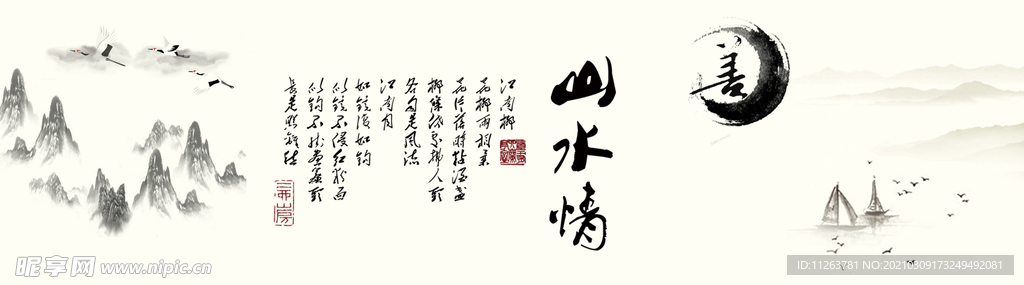 善
山水情
江南柳
花柳两相柔
花片落时黏酒盏
柳条低处拂人头
各自是风流
江南月
如镜复如钩
似镜不侵红粉面
似钩不挂画帘头
长是照离愁
昵享网 www.nipic.cn
ID:11263781 NO:20210309173249492081